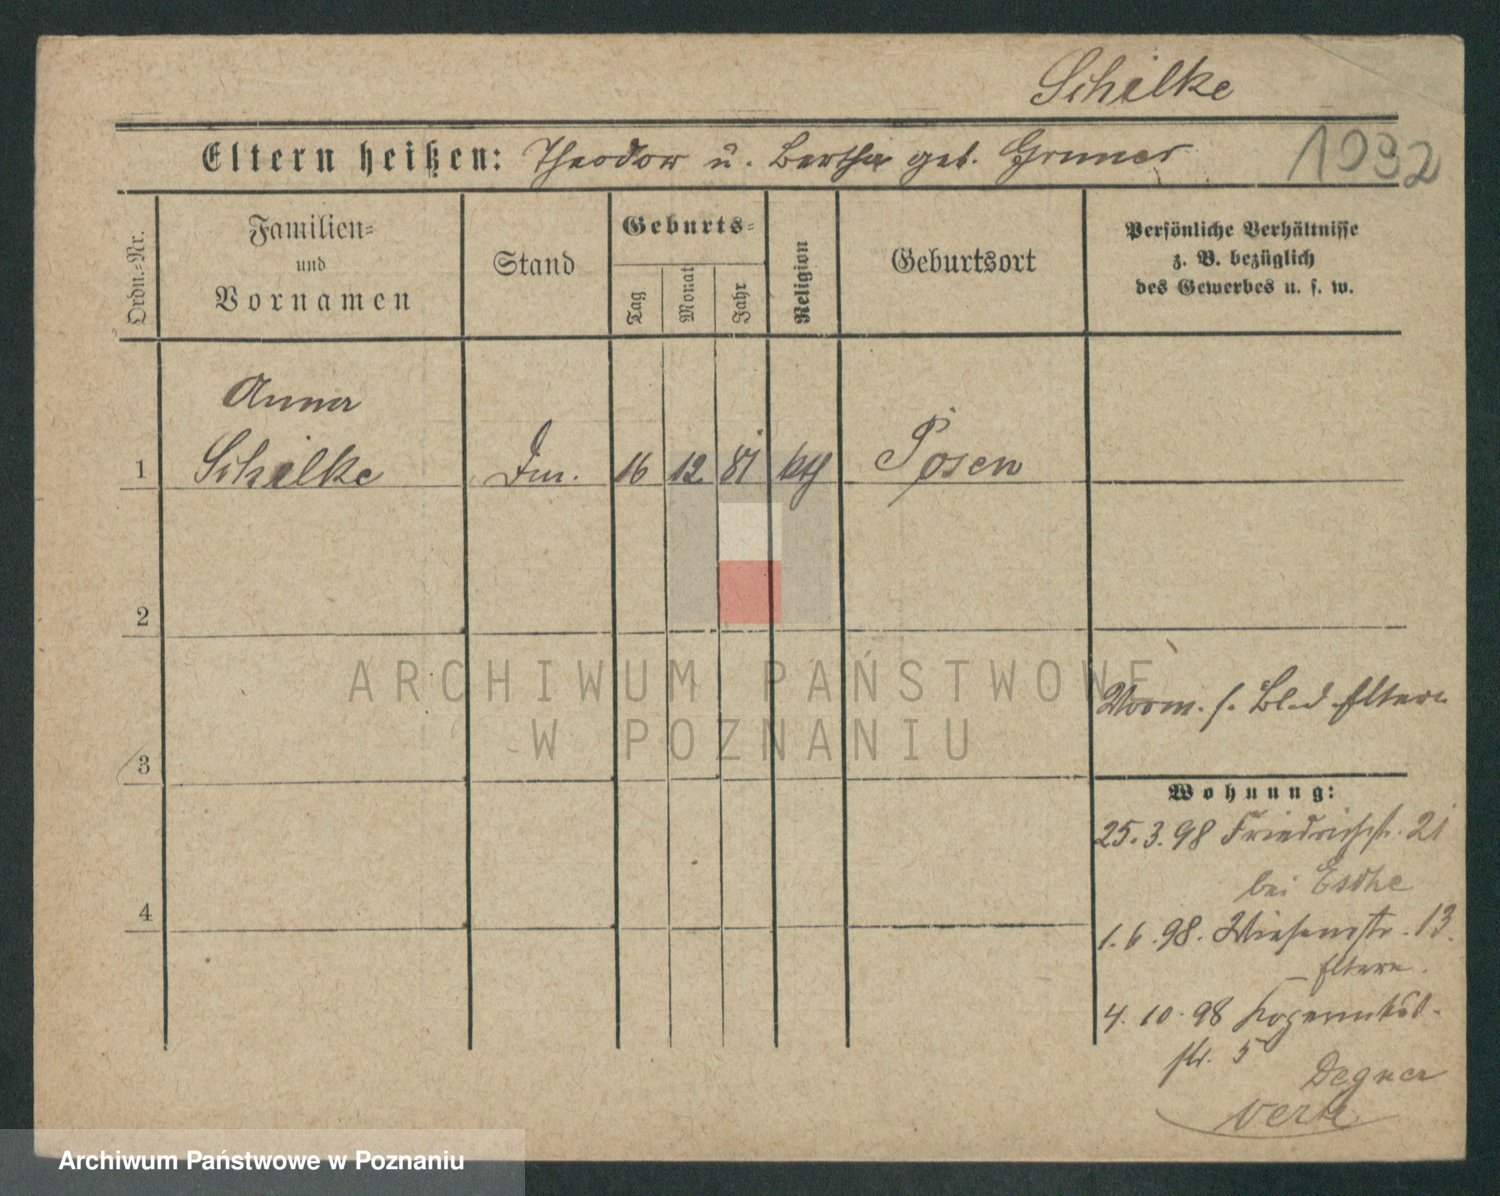 Schilke
Eltern heißen: Theodor u. Bertha geb. Gruner
1032
Ordn.=Nr.
Familien=
und
Vornamen
Stand
Geburts=
Tag
Monat
Jahr
Religion
Geburtsort
Persönliche Verhältnisse
z. B. bezüglich
des Gewerbes u. s. w.
Anna
1 Schilke 16 12 81 kth Posen
2
ARCHIWUM PAŃSTWOWE
W POZNANIU
Vorm. s. Bl. d. Eltern
3
Wohnung:
25.3.98 Friedrichstr. 21
bei Esche
4
1.6.98. Wiesenstr. 13.
Eltern.
4.10.98
str. 5
Degner
verte
Archiwum Państwowe w Poznaniu